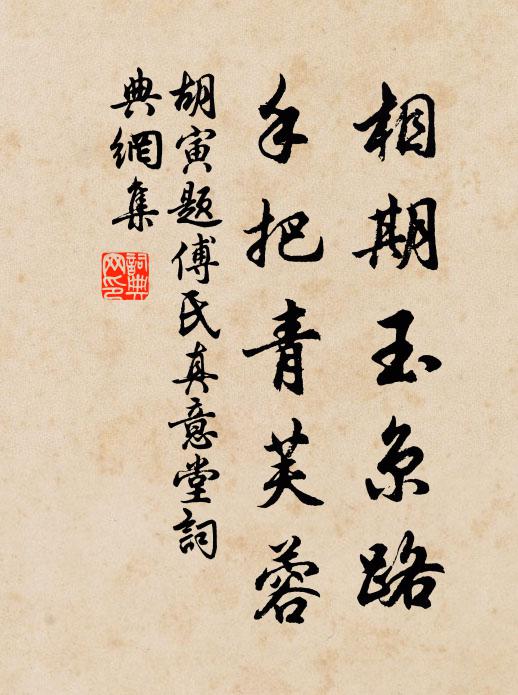 相期玉京路
手把青芙蓉
胡寅題傅氏真意堂詞
典網集
詞典
网印